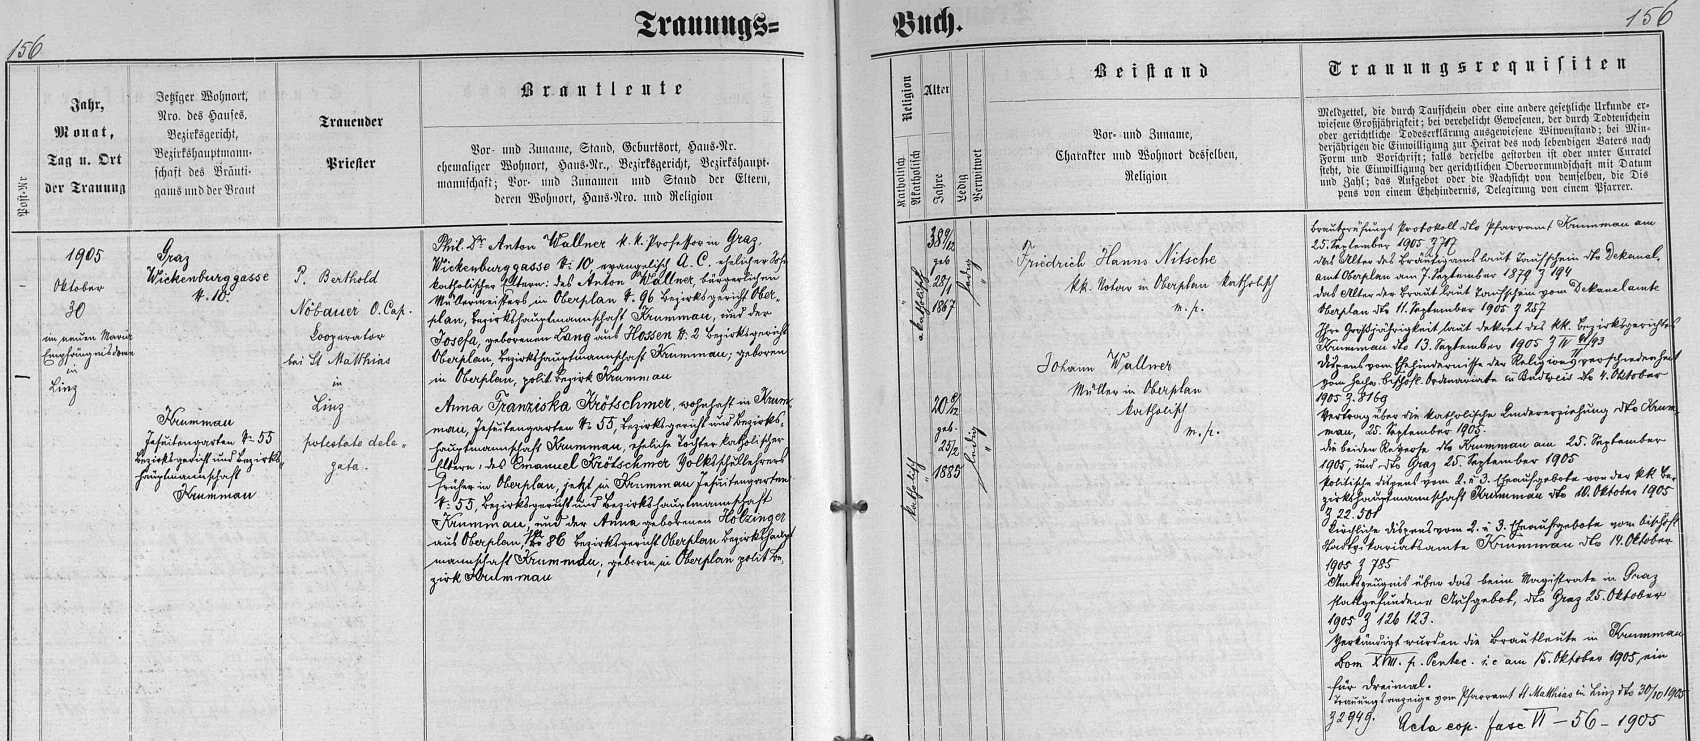 Trauungs=
Buch.
156
156
Post-Nr
Jahr,
Monat,
Tag u. Ort
der Trauung
Jetziger Wohnort,
Nro. des Hauses,
Bezirksgericht,
Bezirkshauptmann-
schaft des Bräuti-
gams und der Braut
Trauender
Priester
Brautleute
Vor- und Zuname, Stand, Geburtsort, Haus-Nr.
ehemaliger Wohnort, Haus-Nr., Bezirksgericht, Bezirkshaupt-
mannschaft; Vor- und Zunamen und Stand der Eltern,
deren Wohnort, Haus-Nro. und Religion
1905
Oktober
30
im neuen Maria
Empfängnisdome
in
Linz
Graz
Wickenburggasse
N. 10.
Krummau
Jesuitengarten N: 55
Bezirksgericht und Bezirks-
hauptmannschaft
Krummau
P. Berthold
Nöbauer O. Cap.
Cooperator
bei St Matthias
in
Linz
potestate dele-
gata.
Phil. Dr. Anton Wallner k. k. Professor in Graz,
Wickenburggasse N: 10, evangelisch A. C. ehelicher Sohn
katholischer Eltern: des Anton Wallner, bürgerlichen
Müllermeisters in Oberplan N. 96 Bezirksgericht Ober-
plan, Bezirkshauptmannschaft Krummau, und der
Josefa, geborenen Lang aus Hossen N: 2 Bezirksgericht
Oberplan, Bezirkshauptmannschaft Krummau; geboren
in Oberplan, polit. Bezirk Krummau
Anna Franziska Krötschmer, wohnhaft in Krum-
mau, Jesuitengarten N: 55, Bezirksgericht und Bezirks-
hauptmannschaft Krummau, eheliche Tochter katholischer
Eltern: des Emanuel Krötschmer Volksschullehrers
früher in Oberplan, jetzt in Krummau Jesuitengarten
N: 55, Bezirksgericht und Bezirkshauptmannschaft
Krummau, und der Anna geborenen Holzinger
aus Oberplan, N: 86 Bezirksgericht Oberplan Bezirkshaupt
mannschaft Krummau; geboren in Oberplan polit. Be-
zirk Krummau
Religion
Katholisch.
Akatholisch
Alter
Jahre
Ledig
Verwitwet
Beistand
Vor- und Zuname,
Charakter und Wohnort desselben,
Religion
Trauungsrequisiten
Meldzettel, die durch Taufschein oder eine andere gesetzliche Urkunde er-
wiesene Großjährigkeit; bei verehelicht Gewesenen, der durch Todtenschein
oder gerichtliche Todeserklärung ausgewiesene Witwenstand; bei Min-
derjährigen die Einwilligung zur Heirat des noch lebendigen Vaters nach
Form und Vorschrift; falls derselbe gestorben ist oder unter Curatel
steht, die Einwilligung der gerichtlichen Obervormundschaft mit Datum
und Zahl; das Aufgebot oder die Nachsicht von demselben, die Dis
pens von einem Ehehindernis, Delegirung von einem Pfarrer.
akatholisch
38 9/12
geb
25/1
1867
ledig
katholisch
20 8/12
geb.
25/2
1885
ledig
Friedrich Hanns Nitsche
kk. Notar in Oberplan katholisch
m. p.
Johann Wallner
Müller in Oberplan
katholisch
m. p.
Brautprüfungs Protokoll dto Pfarramt Krummau am
25. September 1905 Z 717
das Alter des Bräutigams laut Taufschein dto Dekanal-
amt Oberplan am 7. September 1879 Z 194
das Alter der Braut laut Taufschein vom Dekanalamte
Oberplan dto 11. September 1905 Z 257
Ihre Großjährigkeit laut Dekret des kk. Bezirksgerichtes
Krummau dto 13. September 1905
Dispens vom Ehehindernisse der Religionsverschiedenheit
vom hochw. bischöfl. Ordinariate in Budweis dto 4. Oktober
1905 Z. 8169
Vertrag über die katholische Kindererziehung dto Krum-
mau, 25. September 1905.
die beiden Reverse dto Krummau am 25. September
1905, und dto Graz 25. September 1905
Politische Dispens vom 2. u 3. Eheaufgebote von der kk Be-
zirkshauptmannschaft Krummau dto 10. Oktober 1905
Z 22.501
Kirchliche Dispens vom 2. u 3. Eheaufgebote vom bischöfl
Krummau dto 14. Oktober
1905 Z 785
Amtszeugnis über das beim Magistrate in Graz
stattgefundene Aufgebot, dto Graz 25. Oktober
1905 Z 126123.
Verkündigt wurden die Brautleute in Krummau
Dom XVIII. p. Pentec. i. e am 15. Oktober 1905, ein
für dreimal.
Trauungsanzeige vom Pfarramt St Matthias in Linz dto 30/10 1905
Z 2949. Acta cop. fasc VI - 56 - 1905